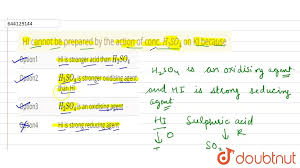 644129144
HI cannot be prepared by the action of conc. H₂SO₄ on KI because
Option1 HI is stronger acid than H₂SO₄
Option2 H₂SO₄ is stronger oxidising agent than HI
Option3 H₂SO₄ is an oxidising agent
Option4 HI is strong reducing agent
H₂SO₄ is an oxidising agent
and HI is strong reducing
agent
HI Sulphuric acid
↓O ↓R
SO₂
doubtnut